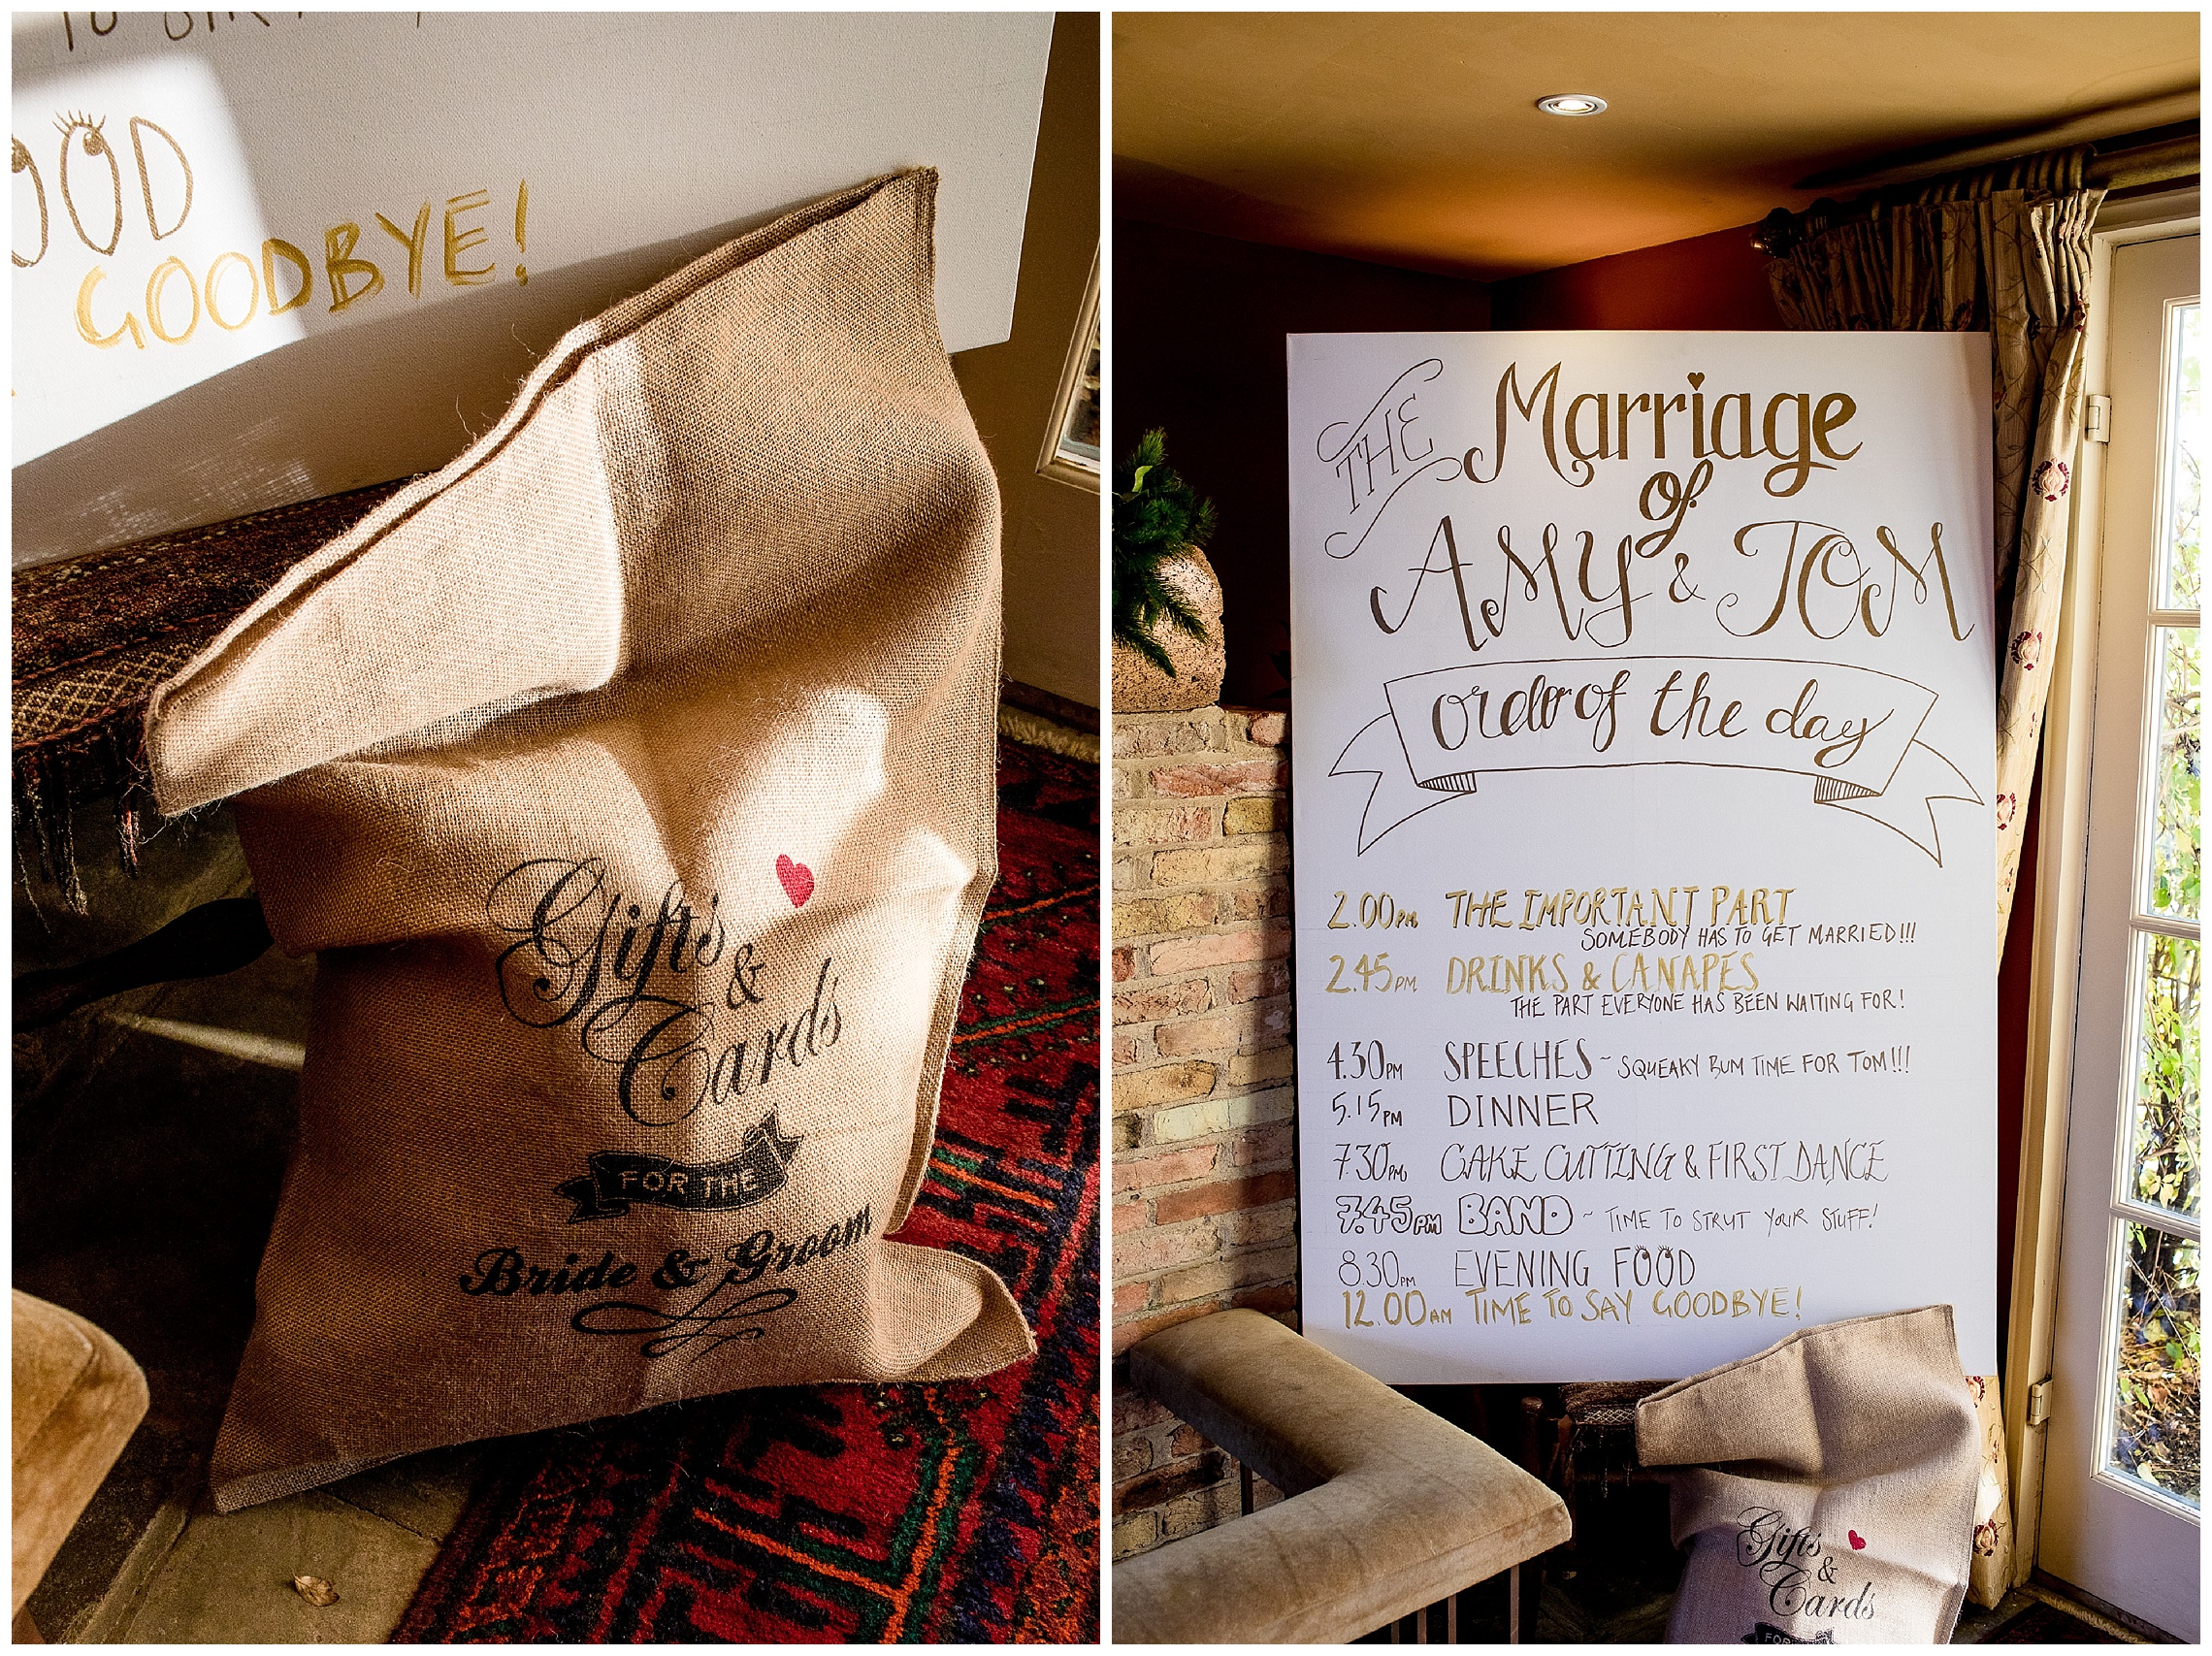 GOODBYE!
Gifts
&
Cards
FOR THE
Bride & Groom
THE Marriage
of
AMY & TOM
order of the day
2.00PM THE IMPORTANT PART
SOMEBODY HAS TO GET MARRIED!!!
2.45PM DRINKS & CANAPES
THE PART EVERYONE HAS BEEN WAITING FOR!
4.30PM SPEECHES ~ SQUEAKY BUM TIME FOR TOM!!!
5.15PM DINNER
7.30PM CAKE CUTTING & FIRST DANCE
7.45PM BAND ~ TIME TO STRUT YOUR STUFF!
8.30PM EVENING FOOD
12.00AM TIME TO SAY GOODBYE!
Gifts
&
Cards
FOR